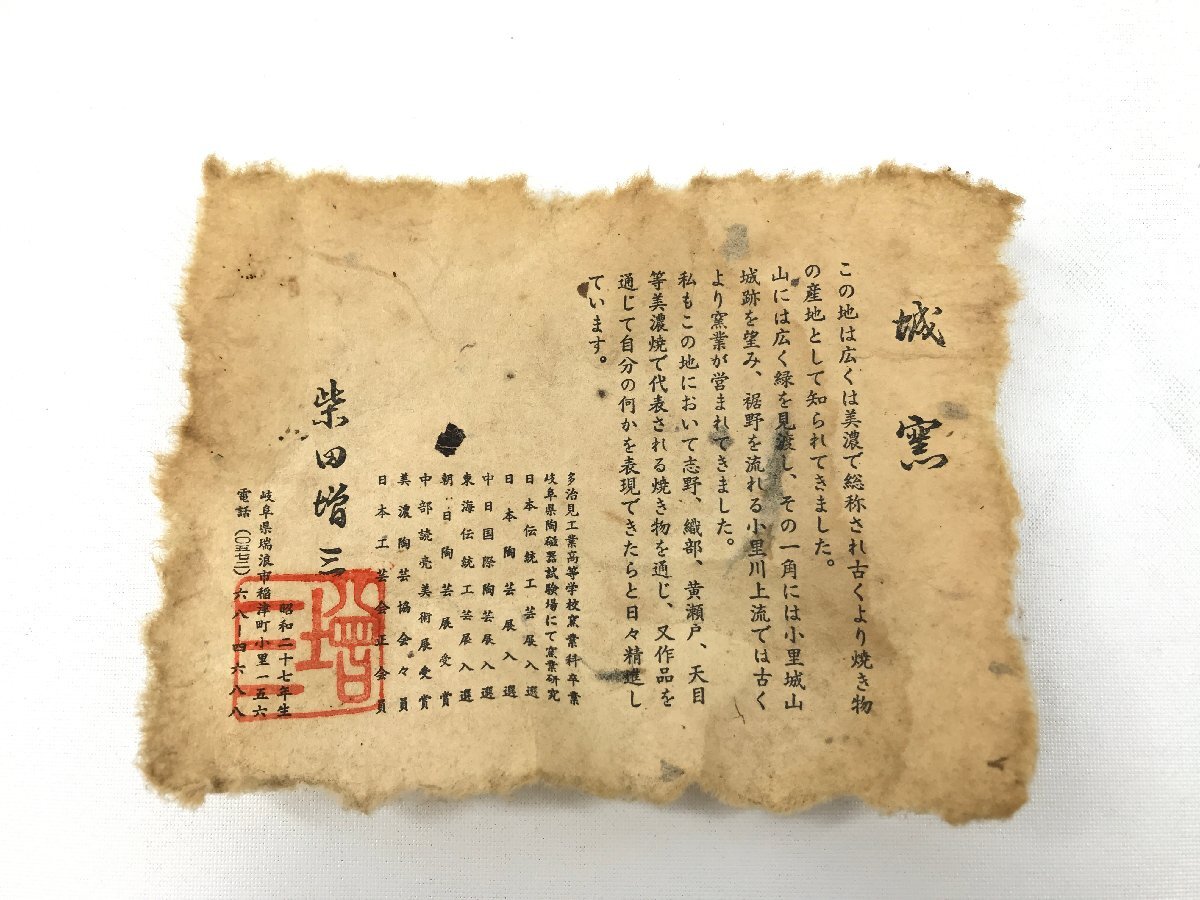 城窯
この地は広くは美濃で総称され古くより焼き物
の産地として知られてきました。
山には広く緑を見渡し、その一角には小里城山
城跡を望み、裾野を流れる小里川上流では古く
より窯業が営まれてきました。
私もこの地において志野、織部、黄瀬戸、天目
等美濃焼で代表される焼き物を通じ、又作品を
通じて自分の何かを表現できたらと日々精進し
ています。
多治見工業高等学校窯業科卒業
岐阜県陶磁器試験場にて窯業研究
日本伝統工芸展入選
日本陶芸展入選
中日国際陶芸展入選
東海伝統工芸展入選
朝日陶芸展受賞
中部読売美術展受賞
美濃陶芸協会々員
日本工芸会正会員
柴田増三
昭和二十七年生
岐阜県瑞浪市稲津町小里一五六
電話(〇五七二)六八ー四六八八